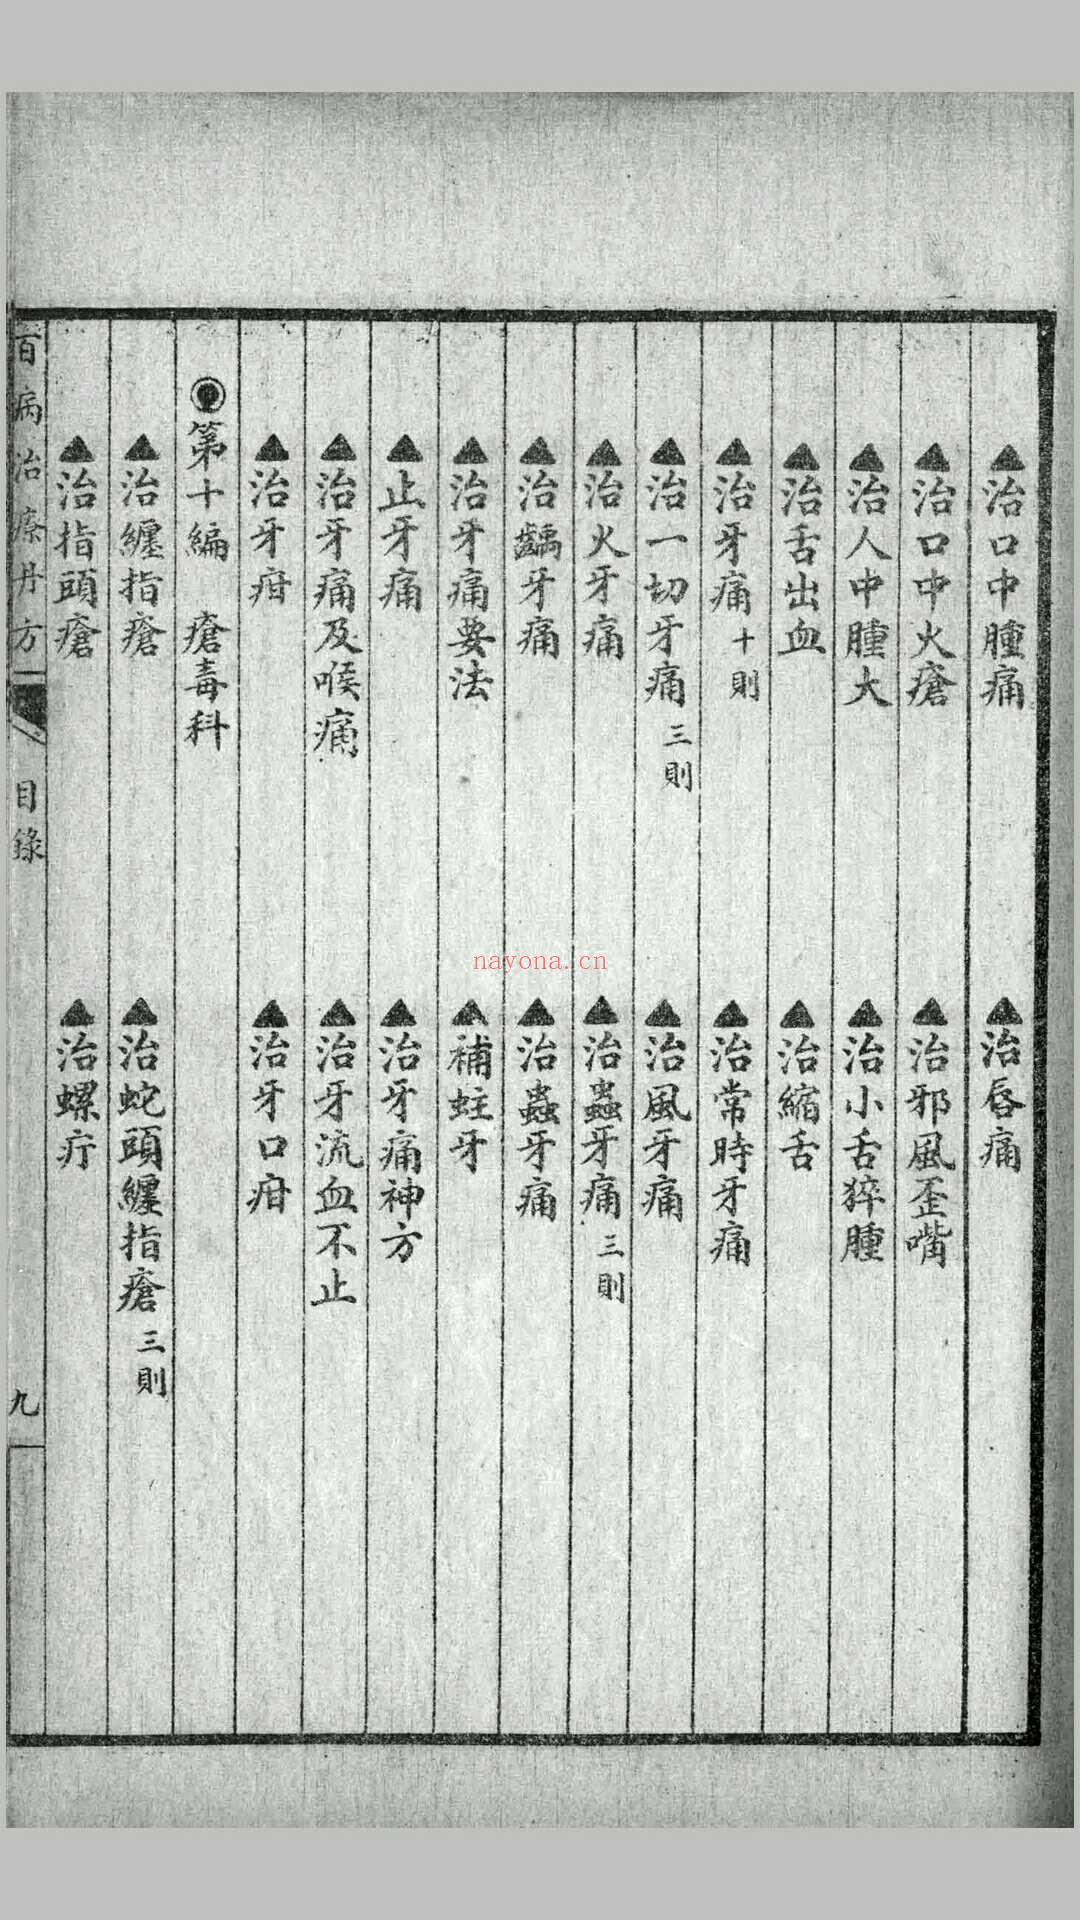 ▲治口中腫痛　▲治唇痛
▲治口中火瘡　▲治邪風歪嘴
▲治人中腫大　▲治小舌猝腫
▲治舌出血　▲治縮舌
▲治牙痛十則　▲治常時牙痛
▲治一切牙痛三則　▲治風牙痛
▲治火牙痛　▲治蟲牙痛三則
▲治齲牙痛　▲治蟲牙痛
▲治牙痛要法　▲補蛀牙
▲止牙痛　▲治牙痛神方
▲治牙痛及喉痛　▲治牙流血不止
▲治牙疳　▲治牙口疳
◉第十編　瘡毒科
▲治纏指瘡　▲治蛇頭纏指瘡三則
▲治指頭瘡　▲治螺疔
百病治療丹方　目錄　九
nayona.cn